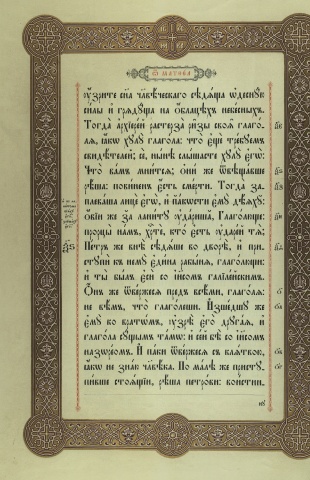 Ѿ МАТѲЕѧ
ѹ҆́зрите сн҃а чл҃вѣ́ческаго сѣдѧ́ща ѡ҆деснꙋ́ю
си́лы и҆ грѧдꙋ́ща на ѡ҆́блацѣхъ небе́сныхъ.
Тогда̀ а҆рхїере́й растерза̀ ри̑зы своѧ̑ глаго́-
лѧ, ꙗ҆́кѡ хꙋлꙋ̀ глаго́ла: что̀ є҆щѐ тре́бꙋемъ
свидѣ́телей; сѐ, нн҃ѣ слы́шасте хꙋлꙋ̀ є҆гѡ̀:
Что̀ ва́мъ мни́тсѧ; ѻ҆ни́ же ѿвѣща́вше
рѣ́ша: пови́ненъ є҆́сть сме́рти. Тогда̀ за-
плева́ша лицѐ є҆гѡ̀, и҆ па́кѡсти є҆мꙋ̀ дѣ́ѧхꙋ:
ѻ҆́вїи же за лани́тꙋ ᲂу҆да́риша, Глаго́люще:
прорцы̀ на́мъ, хрⷭ҇тѐ, кто̀ є҆́сть ᲂу҆да́рей тѧ̀;
Пе́тръ же внѣ̀ сѣдѧ́ше во дворѣ̀, и҆ при-
стꙋпѝ къ немꙋ̀ є҆ди́на рабы́нѧ, глаго́лющи:
и҆ ты̀ бы́лъ є҆сѝ со і҆и҃сомъ галїле́йскимъ.
Ѻ҆́нъ же ѿве́ржесѧ пред̾ всѣ́ми, глаго́лѧ:
не вѣ́мъ, что̀ глаго́леши. И҆зше́дшꙋ же
є҆мꙋ̀ ко вратѡ́мъ, ᲂу҆зрѣ̀ є҆го̀ дрꙋга́ѧ, и҆
глаго́ла сꙋ́щымъ та́мѡ: и҆ се́й бѣ̀ со і҆и҃сомъ
назѡре́омъ. И҆ па́ки ѿве́ржесѧ съ клѧ́твою,
ꙗ҆́кѡ не зна́ю чл҃вѣ́ка. Пома́лѣ же пристꙋ-
пи́вше стоѧ́щїи, рѣ́ша петро́ви: вои́стинꙋ